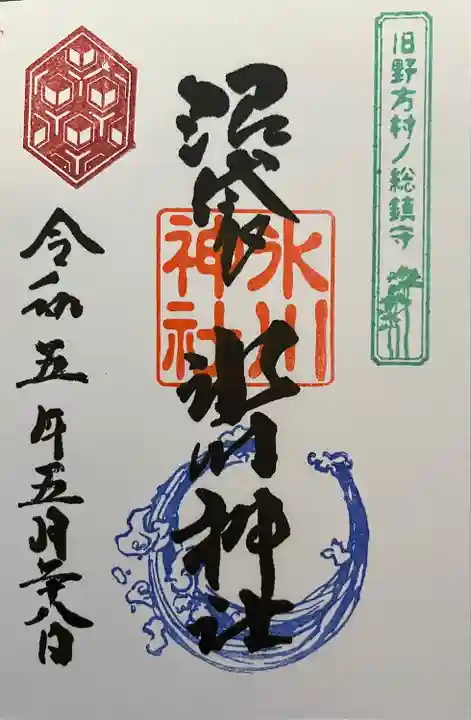 旧野方村ノ総鎮守
沼袋 氷川神社
氷川
神社
令和五年五月廿八日